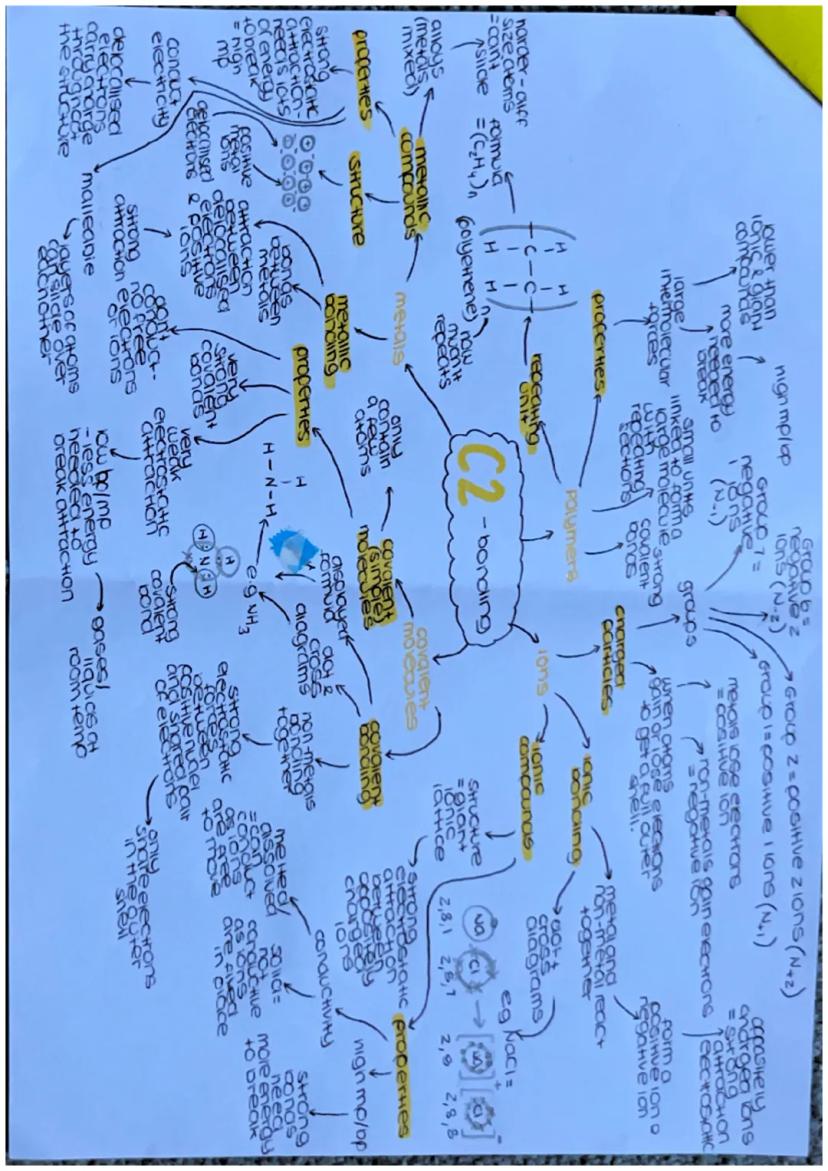 C2
- bonding
metals
metallic
compounds
alloys
(metals
mixed)
harder - diff
size atoms
= can't
slide
properties
strong
electrostatic
attraction -
needs lots
of energy
to break
= high
mp
conduct
electricity
delocalised
electrons
carry charge
through out
the structure
malleable
layers of atoms
can slide over
eachother
structure
positive
metal
ions
delocalised
electrons
metallic
bonding
bonds
between
metals
attraction
between
delocalised
electrons
& positive
ions
strong
attraction
polymers
repeating
unit
H H
- C - C -
H H
n
how
much it
repeats
(polyethene)
formula
= (C2H4)n
properties
large
intermolecular
forces
more energy
needed to
break
high mp/bp
lower than
ionic & giant
compounds
small units
linked to form a
large molecule
with
repeating
sections
strong
covalent
bonds
ions
charged
particles
groups
Group 6 =
negative 2
ions (N-2)
Group 7 =
negative 1
ions
(N-1)
Group 2 = positive 2 ions (N+2)
Group 1 = positive 1 ions (N+1)
when atoms
gain or lose electrons
to get a full outer
shell.
metals lose electrons
= positive ion
non-metals gain electrons
= negative ion
ionic
bonding
metal and
non-metal react
together
form a
positive ion &
negative ion
oppositely
charged ions
= strong
electrostatic
attraction
dot +
cross
diagrams
e.g NaCl =
Na Cl → [Na]+ [Cl]-
2,8,1 2,8,7 2,8 2,8,8
ionic
compounds
structure
= giant
ionic
lattice
strong
electrostatic
attraction
between
oppositely
charged
ions
properties
high mp/bp
strong
bonds
need
more energy
to break
conductivity
solid =
not
conductive
as ions
are fixed
in place
melted/
dissolved
= can
conduct
as ions
are free
to move
covalent
molecules
covalent
bonding
non-metals
bonding
together
strong
electrostatic
forces
between
positive nuclei
and shared pair
of electrons
only
share electrons
in the outer
shell
dot &
cross
diagrams
displayed
formula
e.g NH3
H
H - N - H
H
H N H
strong
covalent
bond
covalent
(simple)
molecules
only
contain
a few
atoms
properties
very
strong
covalent
bonds
don't
conduct -
no free
electrons
or ions
very
weak
electrostatic
attraction
low bp/mp
- less energy
needed to
break attraction
gases/
liquids at
room temp